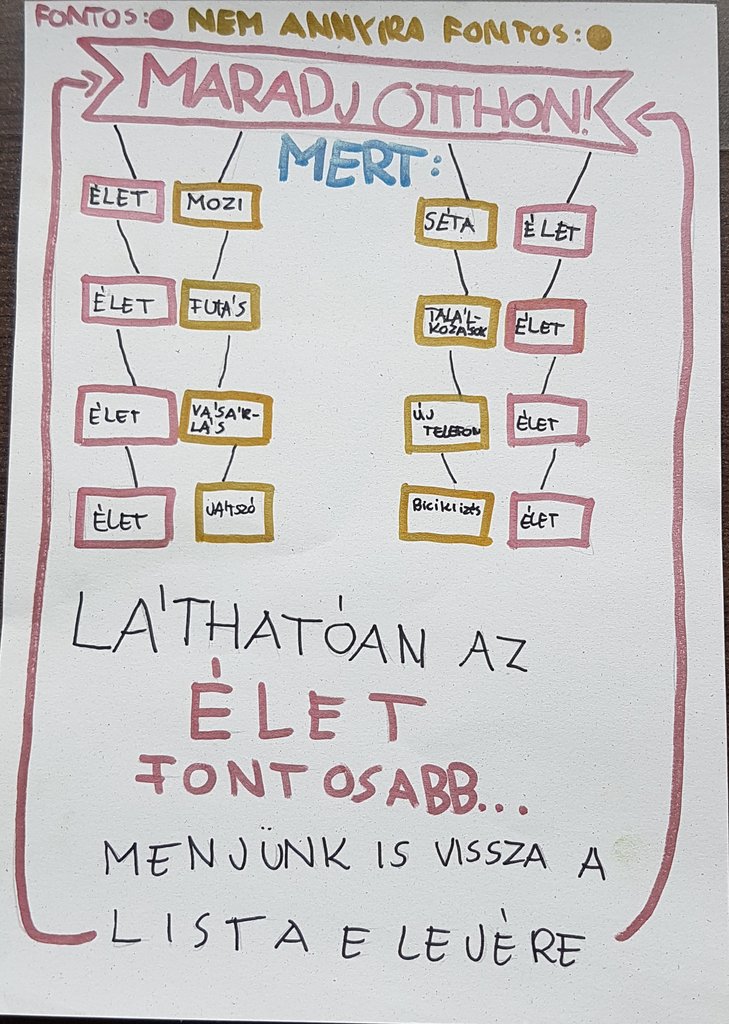 FONTOS: NEM ANNYIRA FONTOS:
MARADJ OTTHON!
MERT:
ÉLET MOZI SÉTA ÉLET
ÉLET FUTÁS TALÁL-
KOZÁSOK ÉLET
ÉLET VÁSÁR-
LÁS ÚJ
TELEFON ÉLET
ÉLET JÁTSZÓ BICIKLIZÉS ÉLET
LÁTHATÓAN AZ
ÉLET
FONTOSABB...
MENJÜNK IS VISSZA A
LISTA ELEJÉRE